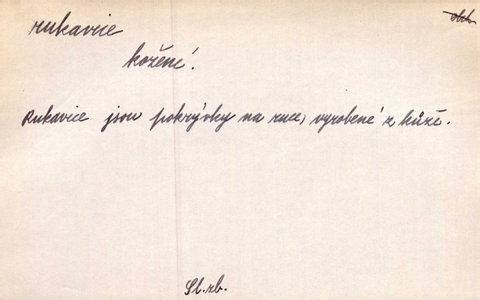 rukavice
kožené!
Rukavice jsou pokrývky na ruce, vyrobené z kůže.
Sl. zb.